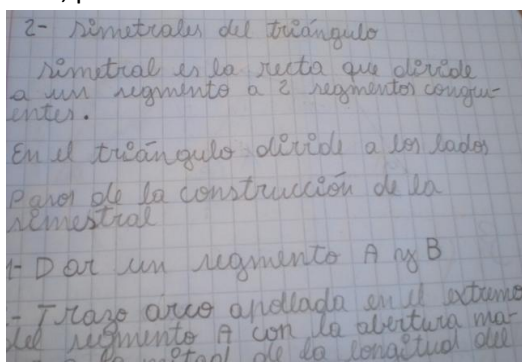 2- simetrales del triángulo
simetral es la recta que divide
a un segmento a 2 segmentos congru-
entes.
En el triángulo divide a los lados
Pasos de la construcción de la
simestral
1- Dar un segmento A y B
- Trazo arco apollada en el extremo
del segmento A con la abertura ma-
a la mitad de la longitud del